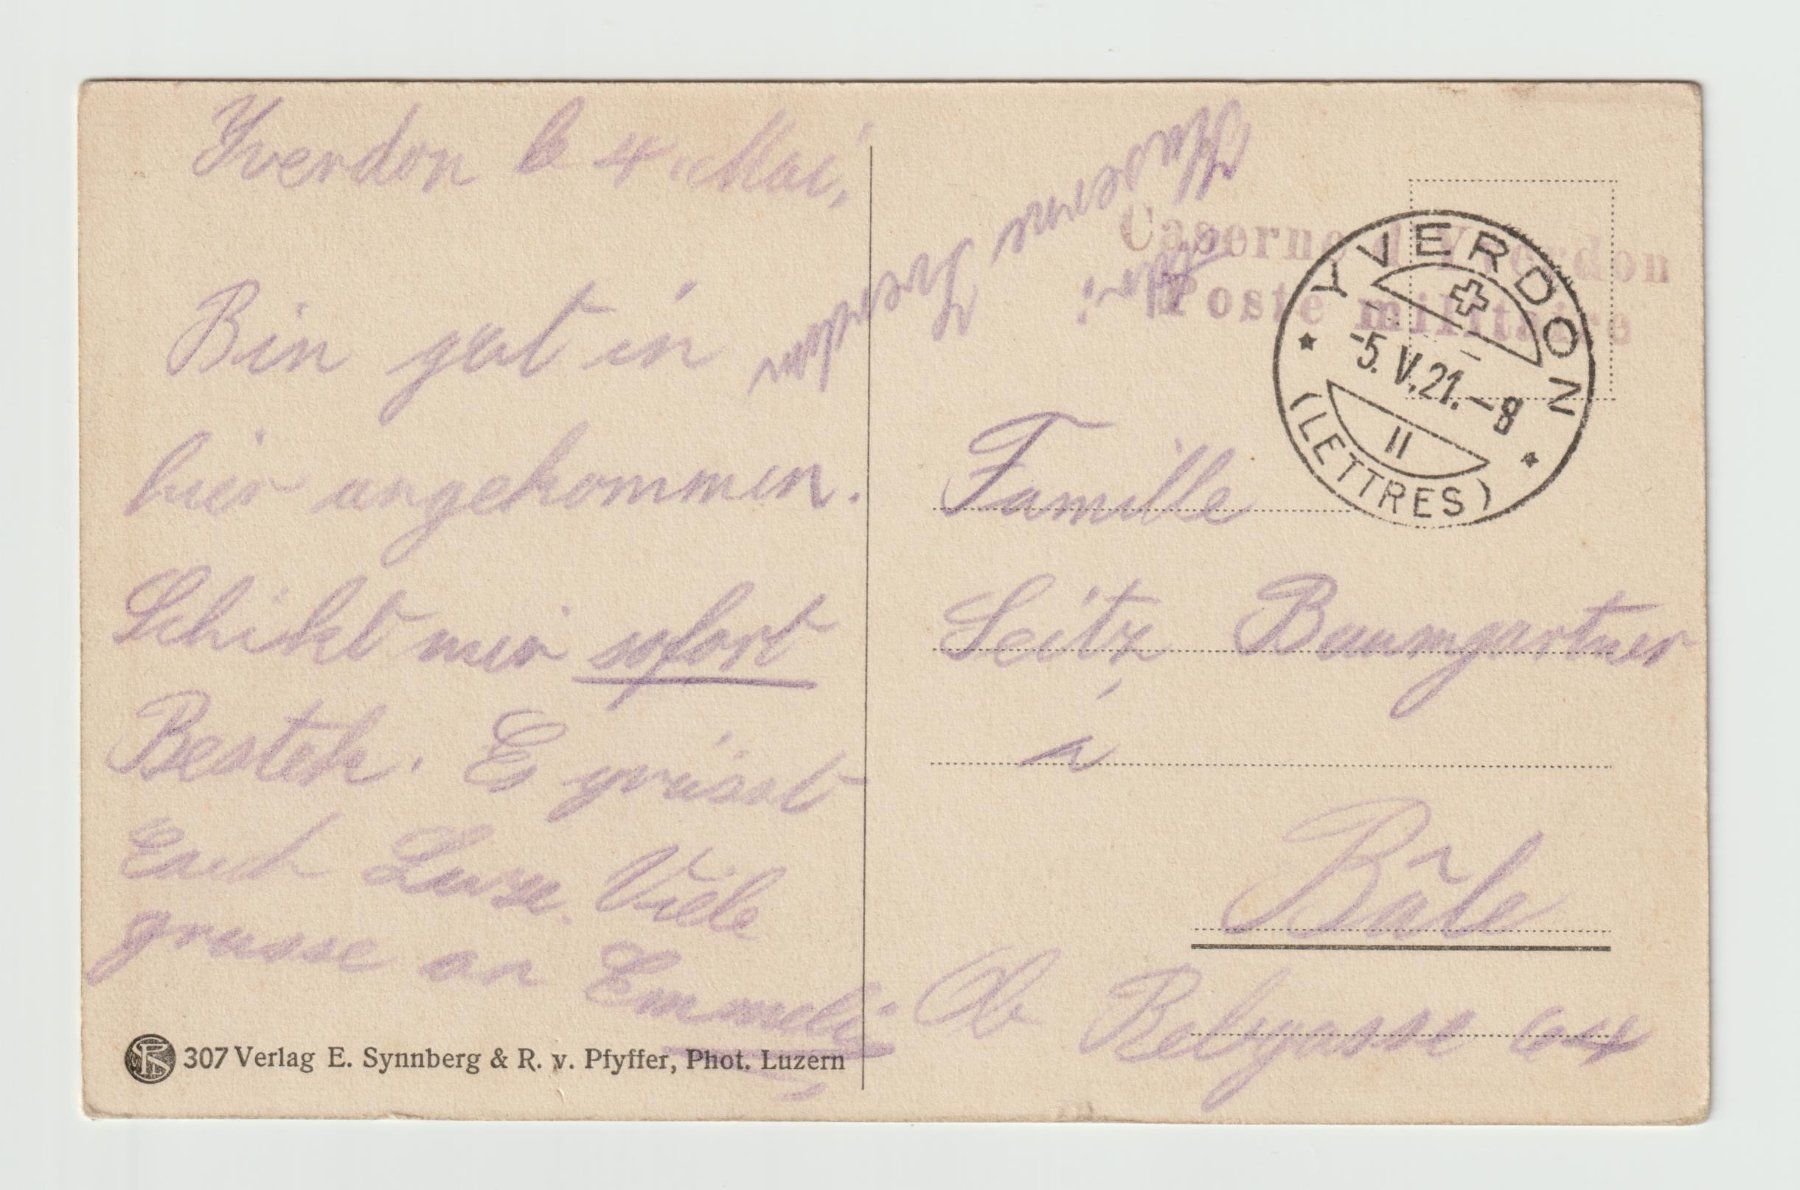 Yverdon le 4. Mai,
Bin gut in
hier angekommen.
Schikt mir sofort
Besteck. Es grüsst
Euch Luise. Viele
grüsse an Emmeli
307 Verlag E. Synnberg & R. v. Pfyffer, Phot. Luzern
Yverdon
Caserne d'Yverdon
Poste militaire
YVERDON
-5. V. 21. - 8
II
(LETTRES)
Famille
Seitz Baumgartner
à
Bâle
Ob Rebgasse 64